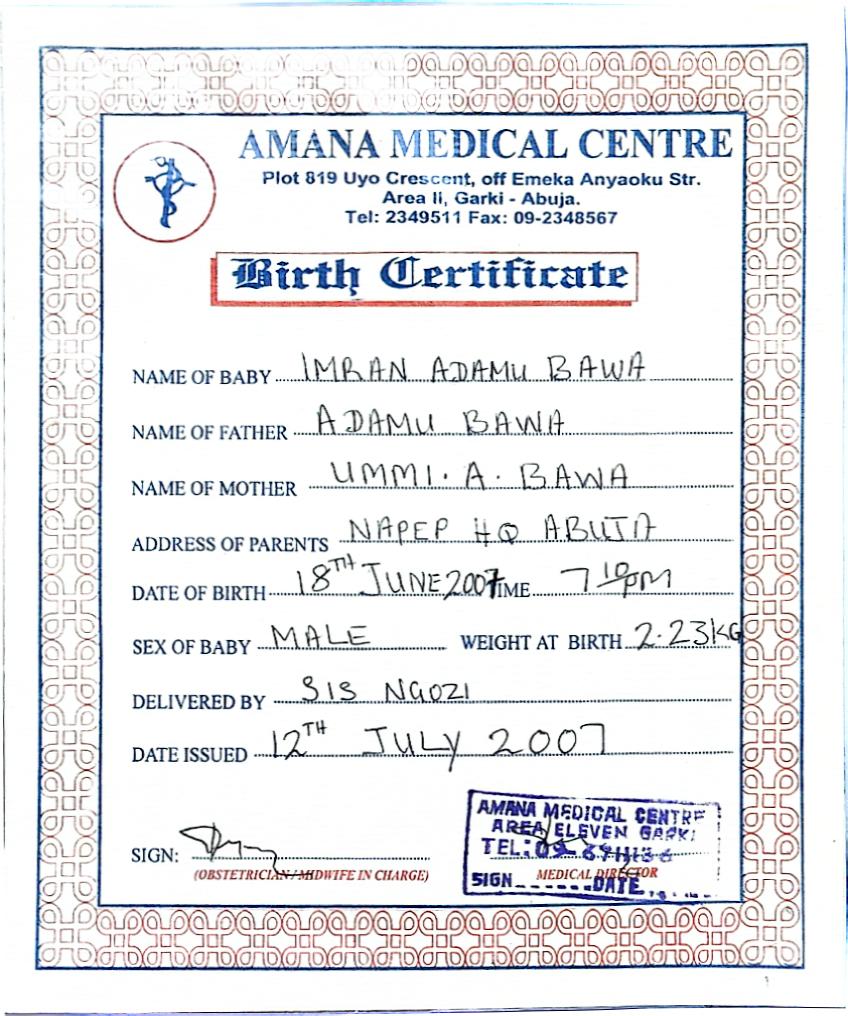 AMANA MEDICAL CENTRE
Plot 819 Uyo Crescent, off Emeka Anyaoku Str.
Area Ii, Garki - Abuja.
Tel: 2349511 Fax: 09-2348567
Birth Certificate
NAME OF BABY IMRAN ADAMU BAWA
NAME OF FATHER ADAMU BAWA
NAME OF MOTHER UMMI. A. BAWA
ADDRESS OF PARENTS NAPEP HQ ABUJA
DATE OF BIRTH 18TH JUNE 2007 TIME 7 10 PM
SEX OF BABY MALE WEIGHT AT BIRTH 2.23KG
DELIVERED BY SIS NGOZI
DATE ISSUED 12TH JULY 2007
AMANA MEDICAL CENTRE
AREA ELEVEN GARKI
TEL: 09-
SIGN DATE
SIGN:
(OBSTETRICIAN/MIDWIFE IN CHARGE) MEDICAL DIRECTOR